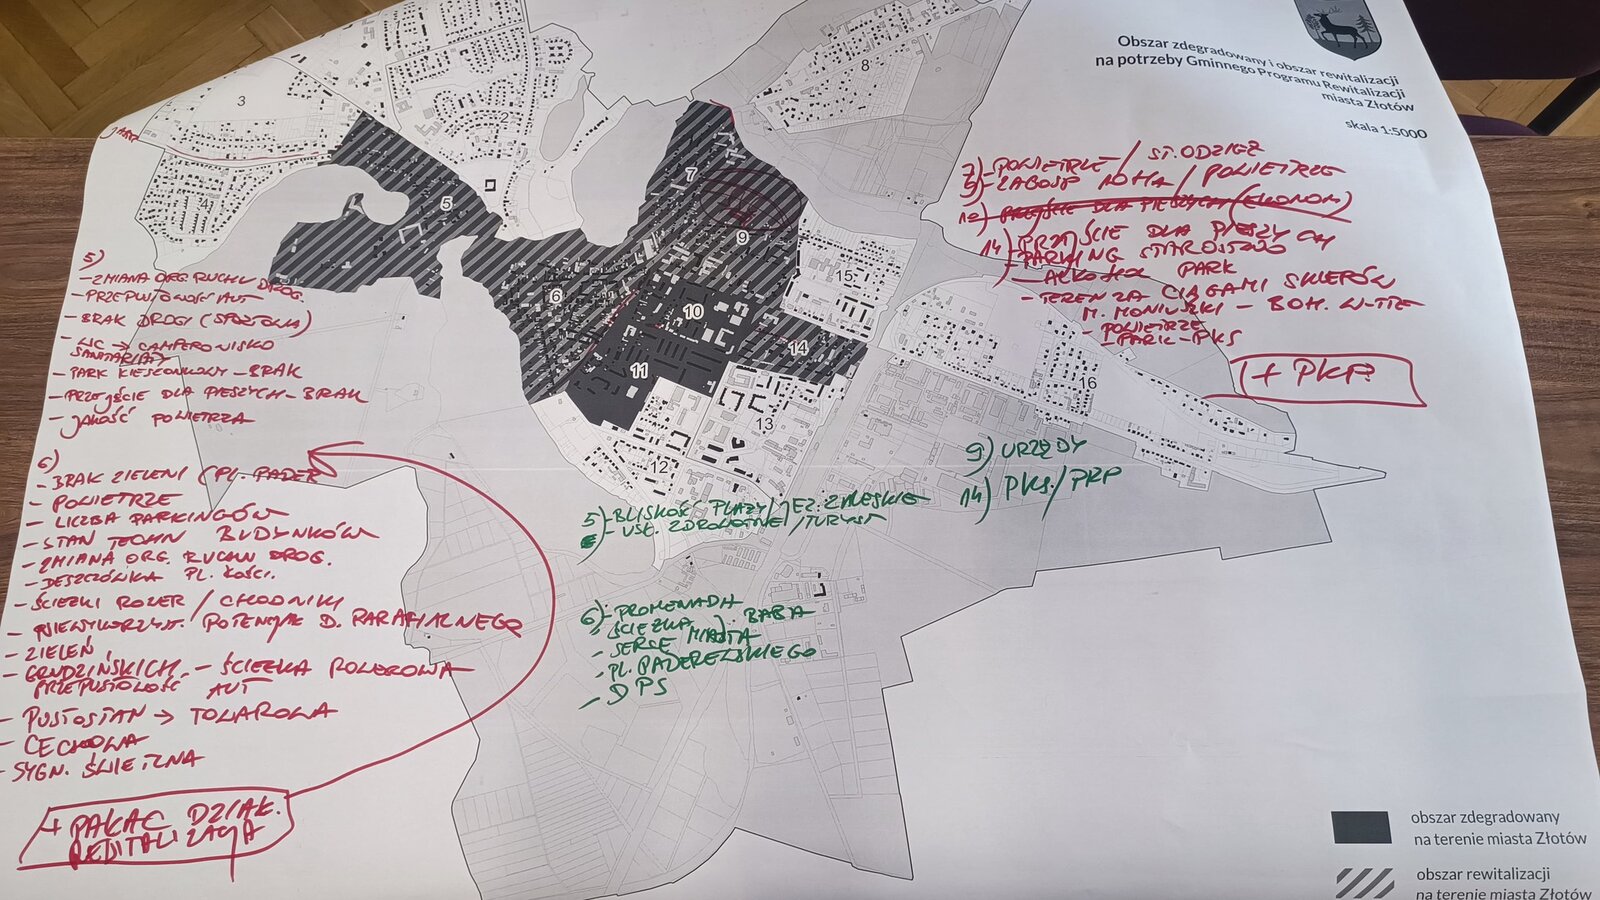 Obszar zdegradowany i obszar rewitalizacji
na potrzeby Gminnego Programu Rewitalizacji
miasta Złotów
skala 1:5000
3
2
8
4
5
7
9
6
10
15
14
11
16
13
12
5)
- ZMIANA ORG. RUCHU DROG.
- PRZEPUSTOWOŚĆ AUT
- BRAK DROGI (SPORTOWA)
- WC → CAMPEROWISKO
SANITARIATY
- PARK KIESZONKOWY - BRAK
- PRZEJŚCIE DLA PIESZYCH - BRAK
- JAKOŚĆ POWIETRZA
6)
- BRAK ZIELENI (PL. PADER
- POWIETRZE
- LICZBA PARKINGÓW
- STAN TECHN BUDYNKÓW
- ZMIANA ORG. RUCHU DROG.
- DESZCZÓWKA PL. KOŚCI.
- ŚCIEŻKI ROWER / CHODNIKI
- NIEWYKORZYST. POTENCJAŁ D. PARAFIALNEGO
- ZIELEŃ
- GRUDZIŃSKICH - ŚCIEŻKA ROWEROWA
PRZEPUSTOWOŚĆ AUT
- PUSTOSTAN → TOWAROWA
- CECHOWA
- SYGN. ŚWIETLNA
+ PAŁAC DZIAŁ.
REWITALIZACJA
7) - POWIETRZE / ST. ODZIEŻ
9) - ZABUDP DOMA / POWIETRZE
10) - PRZEJŚCIE DLA PIESZYCH (EKONOM)
14) - PRZEJŚCIE DLA PIESZYCH
- PARKING STAROSTWO
- ALKOHOL PARK
- TEREN ZA CIĄGAMI SKLEPÓW
M. MONIUSZKI - BOH. W-TTE
- POWIETRZE
- PARK - PKS
+ PKP?
9) URZĘDY
14) PKS / PKP
5) - BLISKOŚĆ PLAŻY / JEZ. ZALESKIE
- USŁ. ZDROWOTNE / TURYST
6) - PROMENADA
- ŚCIEŻKA J. BABA
- SERCE MIASTA
- PL. PADEREWSKIEGO
- DPS
obszar zdegradowany
na terenie miasta Złotów
obszar rewitalizacji
na terenie miasta Złotów